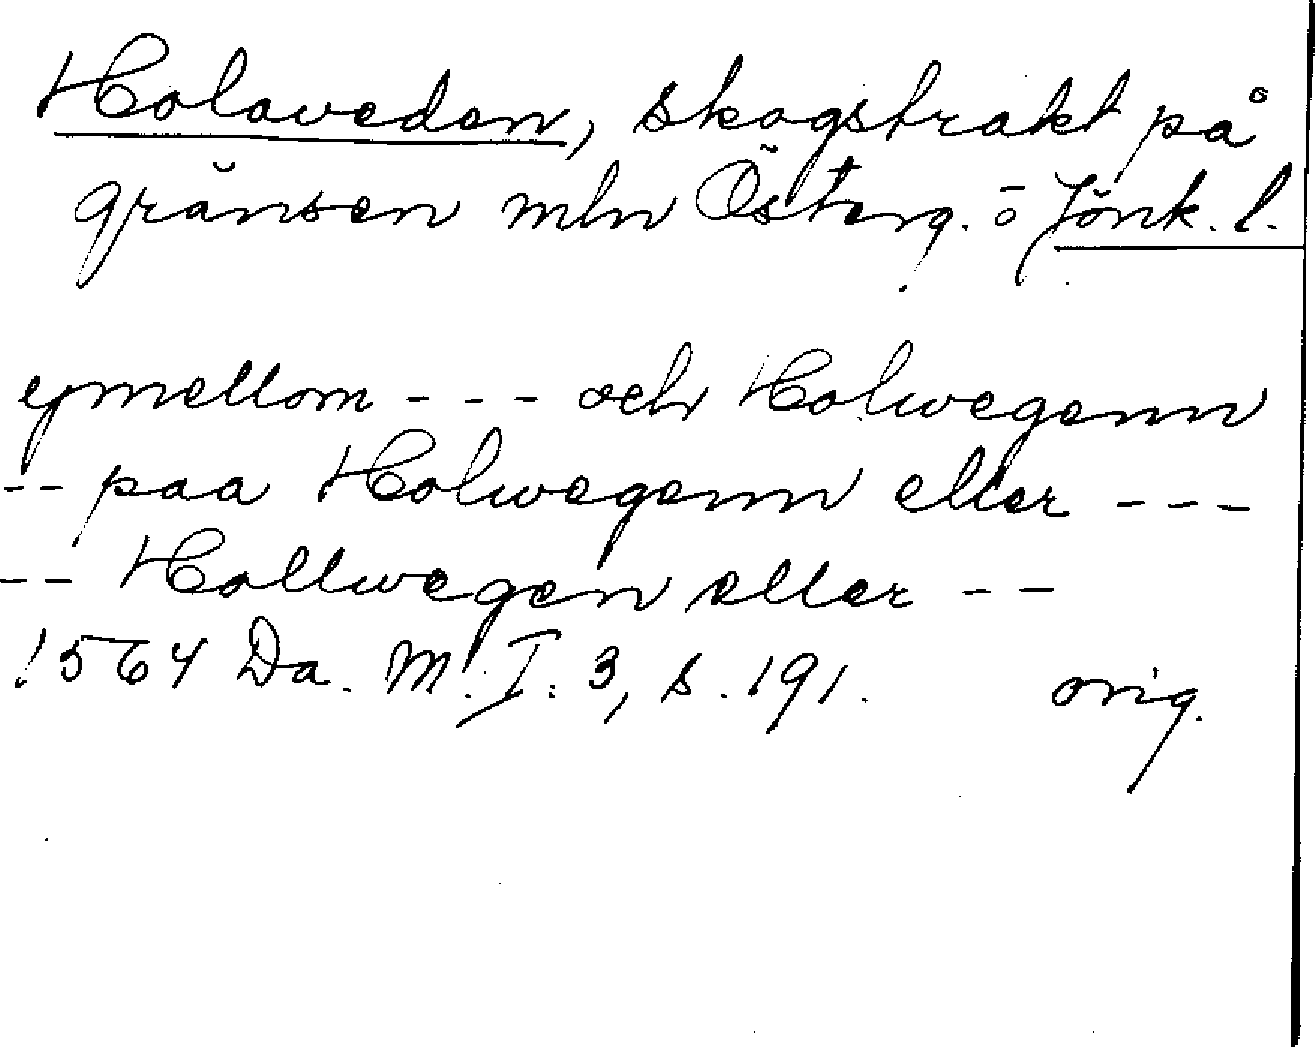 Holaveden, skogstrakt på
gränsen mln Österg. o Jönk. l.
ymellom - - - och Holwegenn
-- paa Holwegenn eller - - -
-- Hollwegen eller - -
1564 Da. M. I: 3, s. 191. orig.